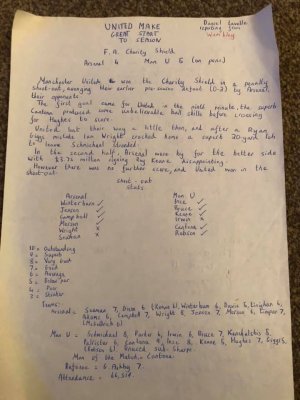 UNITED MAKE
GREAT START
TO SEASON
Daniel
reporting from
Wembley
F.A. Charity Shield
Arsenal 4 Man U 5 (on pens)
Manchester United won the Charity Shield in a penalty
shoot-out, avenging their earlier pre-season defeat (0-2) by Arsenal,
their opponents.
The first goal came for United in the ninth minute, the superb
Cantona produced some unbelievable ball skills before crossing
for Hughes to score.
United lost their way a little then, and after a Ryan
Giggs mistake Ian Wright cracked home a superb 20-yard lob
to leave Schmeichel stranded.
In the second half, Arsenal were by far the better side
with £3.75 million signing Roy Keane disappointing.
However there was no further score, and United won in the
shoot-out.
shoot-out
stats
Arsenal
Winterburn ✓
Jensen ✓
Campbell ✓
Merson ✓
Wright x
Seaman x
Man U
Ince ✓
Bruce ✓
Keane ✓
Irwin x
Cantona ✓
Robson ✓
10 = Outstanding
9 = Superb
8 = Very Good
7 = Good
6 = Average
5 = Below par
4 = Poor
3 = Stinker
Teams:
Arsenal = Seaman 7, Dixon 6 (Keown 6), Winterburn 6, Davis 6, Linighan 6,
Adams 6, Campbell 7, Wright 8, Jensen 7, Merson 6, Limpar 7,
(McGoldrick 6)
Man U = Schmeichel 8, Parker 6, Irwin 6, Bruce 7, Kanchelskis 8,
Pallister 6, Cantona 9, Ince 8, Keane 5, Hughes 7, Giggs 5,
(Robson 6). Unused sub: Sharpe
Man of the Match:- Cantona
Referee = G. Ashby 7
Attendance = 66,519